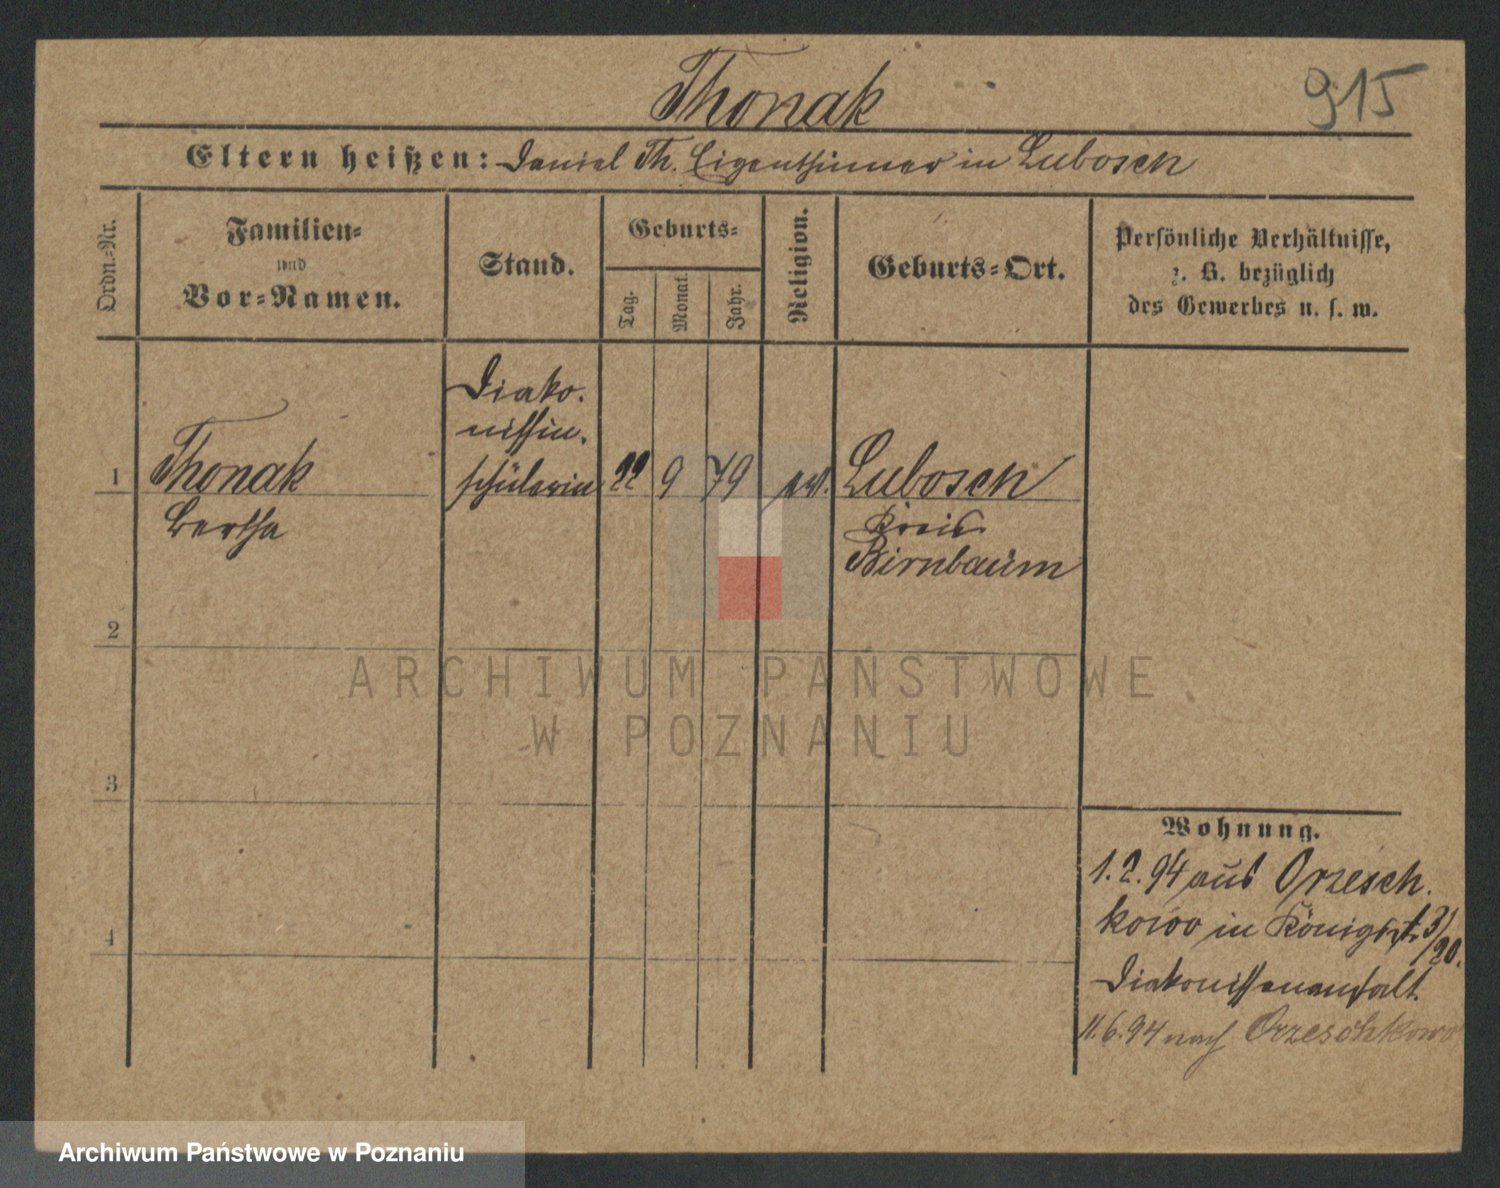 Thonak
915
Eltern heißen: Daniel Th. Eigenthümer in Lubosch
Ordn.-Nr.
Familien-
und
Vor-Namen.
Stand.
Geburts-
Tag.
Monat.
Jahr.
Religion.
Geburts-Ort.
Persönliche Verhältnisse,
z. B. bezüglich
des Gewerbes u. s. w.
1
Thonak
Bertha
Diako-
nissin-
schülerin
22
9
79
ev.
Lubosch
Kreis
Birnbaum
2
3
4
Wohnung.
1. 2. 94 aus Orzesch-
kowo in Königst. 3/
20.
Diakonissenanstalt
11. 6. 94 nach Orzeschkowo
ARCHIWUM PAŃSTWOWE
W POZNANIU
Archiwum Państwowe w Poznaniu